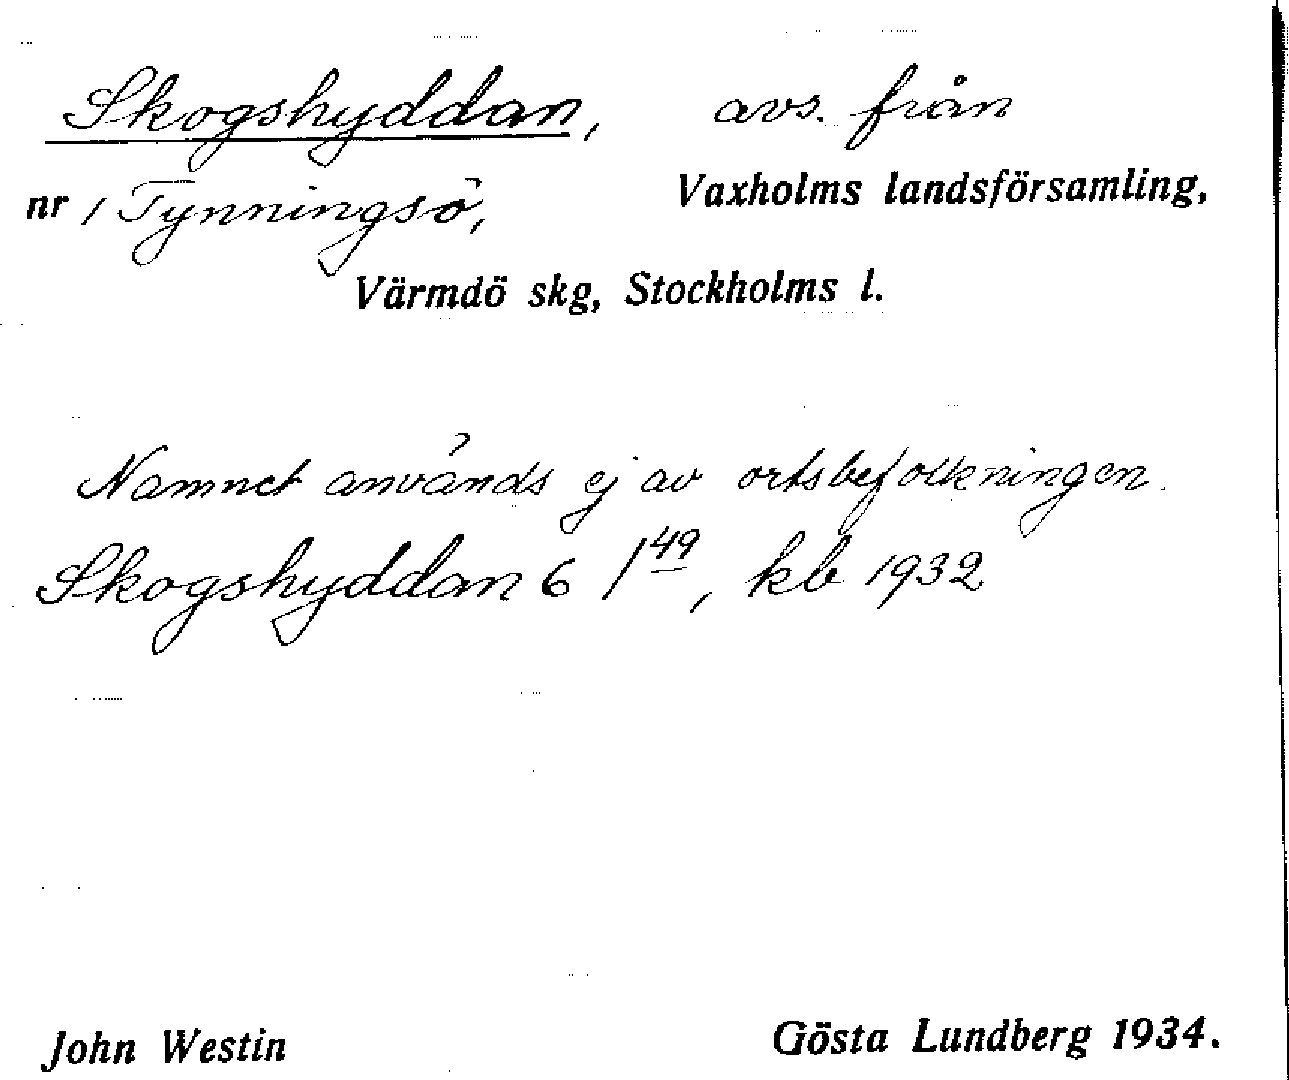 Skogshyddan, avs. från
nr 1 Tynningsö, Vaxholms landsförsamling,
Värmdö skg, Stockholms l.
Namnet används ej av ortsbefolkningen.
Skogshyddan 6 1⁴⁹, kb 1932
John Westin Gösta Lundberg 1934.